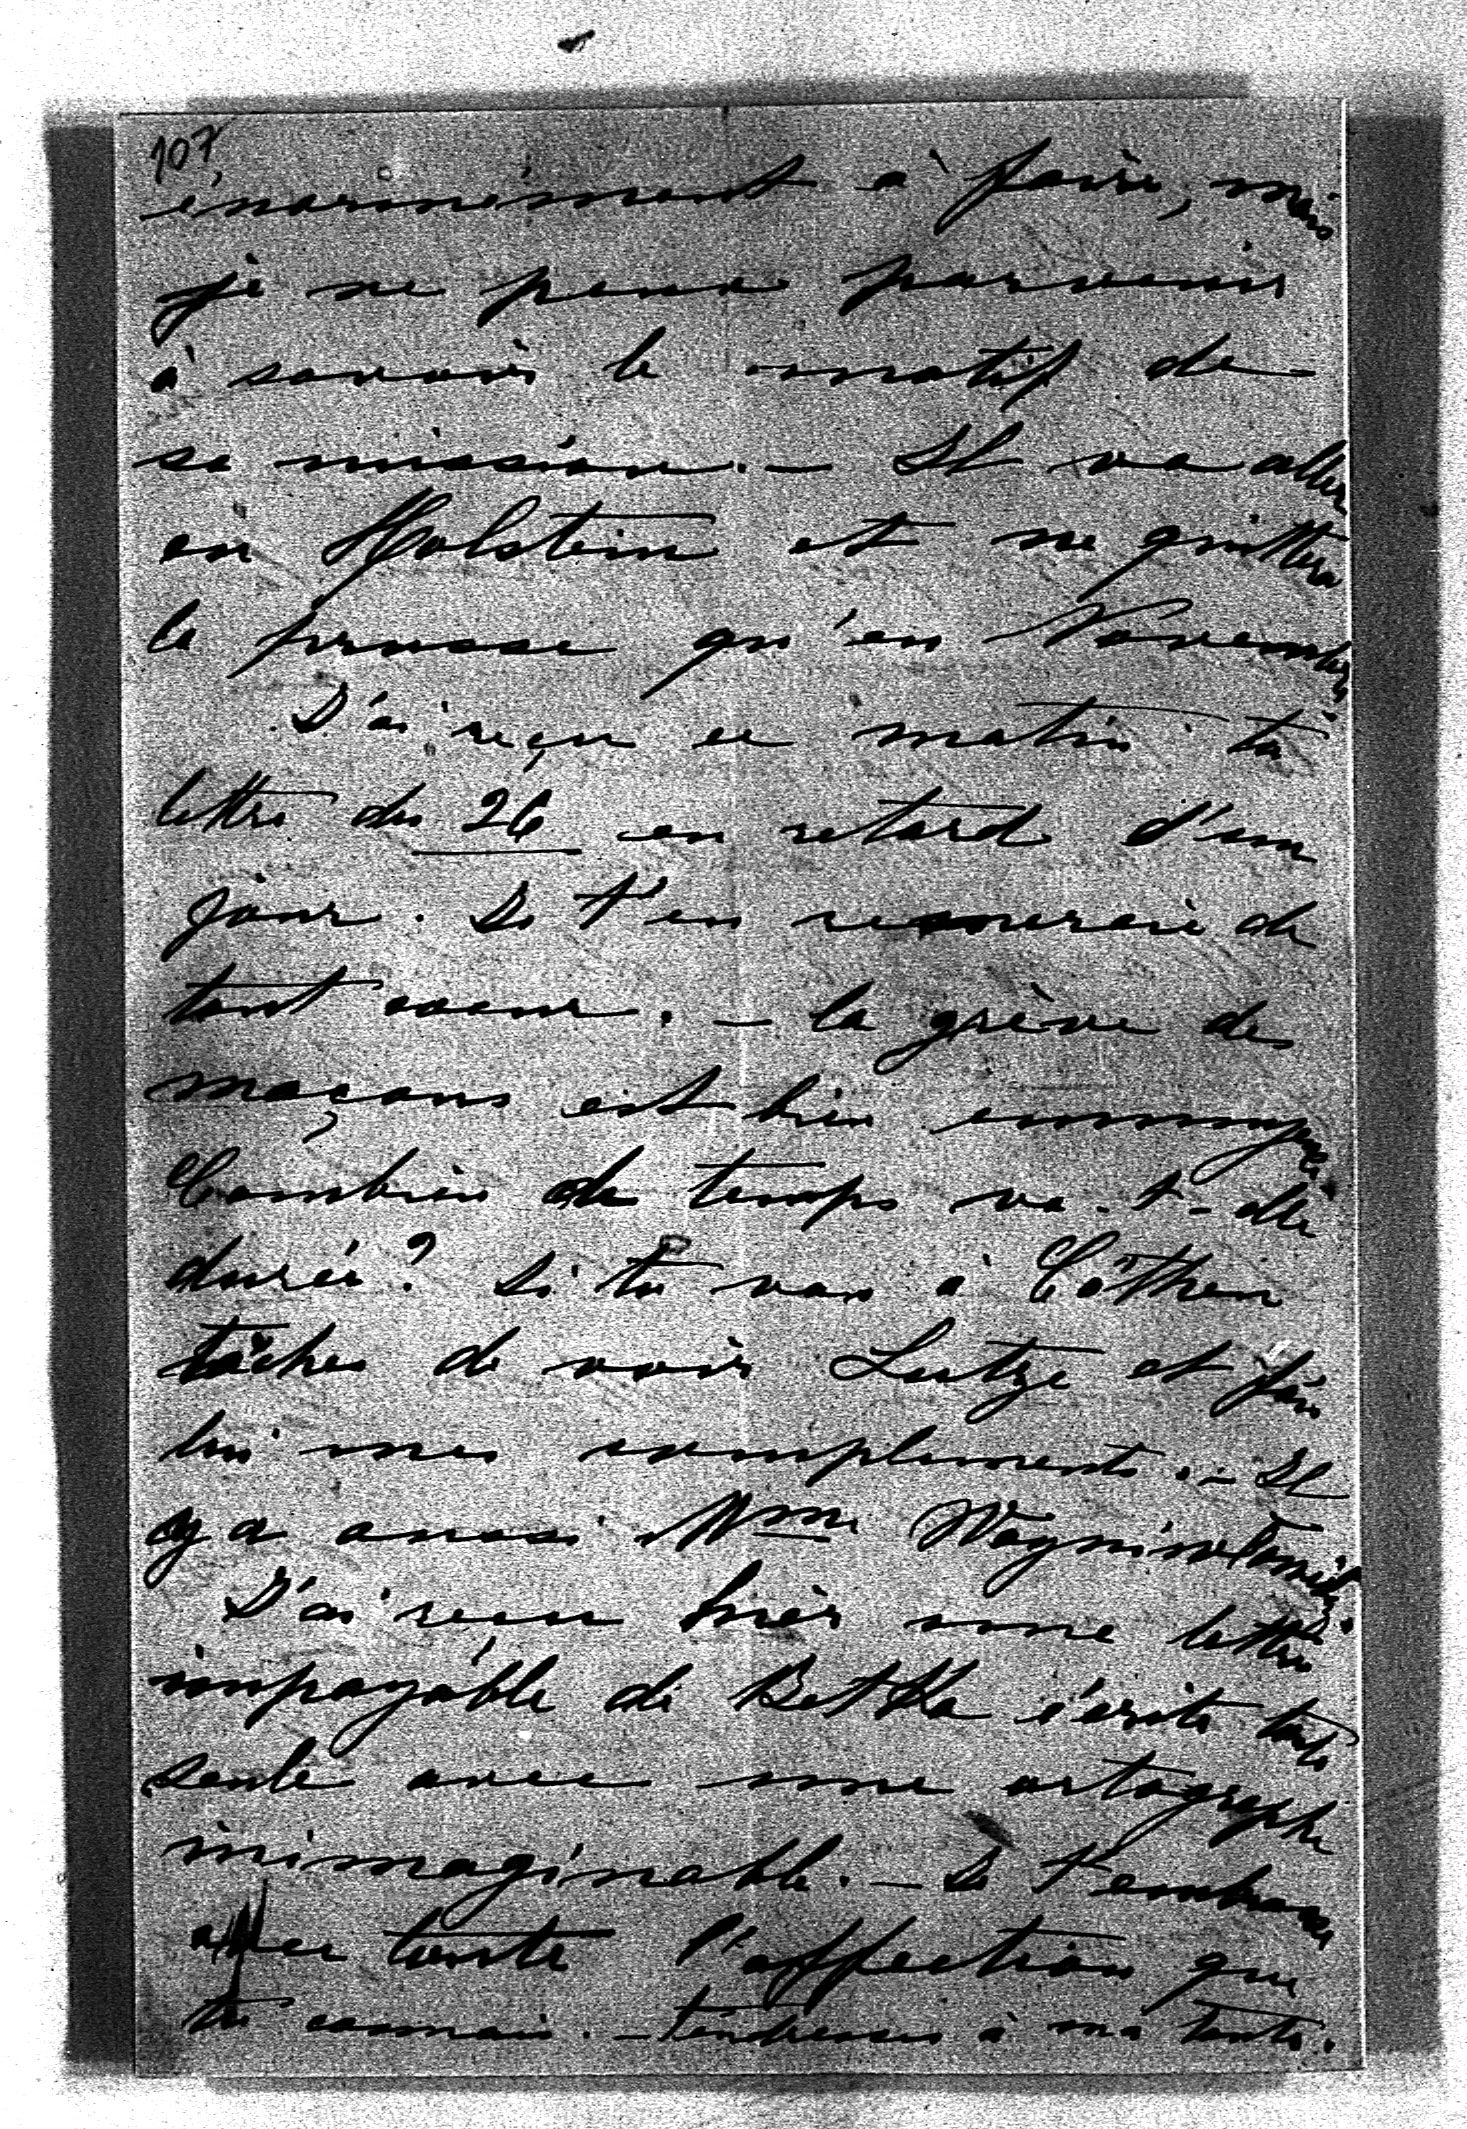 107
énormément à faire, mais
je ne peux parvenir
à savoir le motif de
sa mission. — Il va aller
en Holstein et ne quittera
la prusse qu'en Novembre
J'ai reçu ce matin ta
lettre du 26 en retard d'un
jour. Je t'en remercie de
tout coeur. — la grève des
maçons est bien
Combien de temps va-t-elle
durée? Si tu vas à Cöthen
tâches de voir Lutze et fais
lui mes compliments. — Il
y a aussi Mme
J'ai reçu hier une lettre
impayable de Betka écrite toute
seule avec une ortographe
inimaginable. — Je t'embrasse
avec toute l'affection que
tu connais. — Tendresses à ma tante.